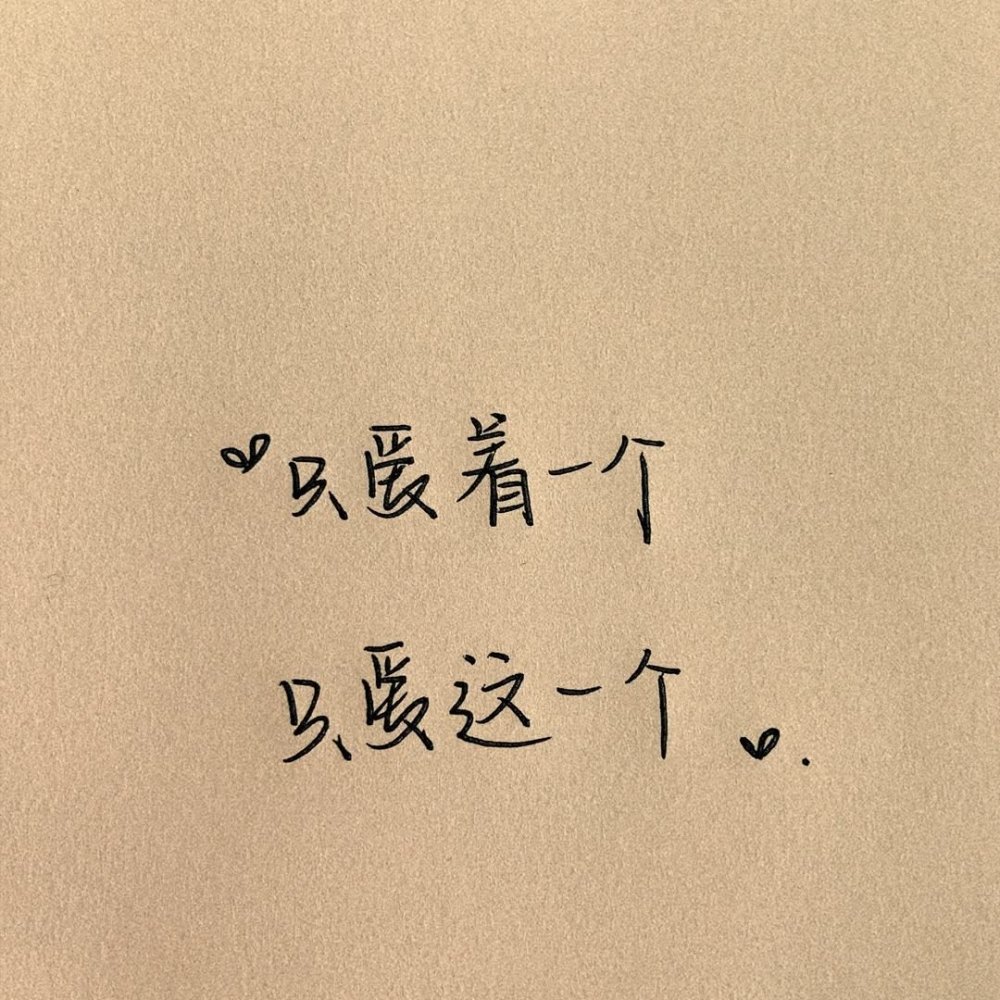 只爱着一个
只爱这一个.